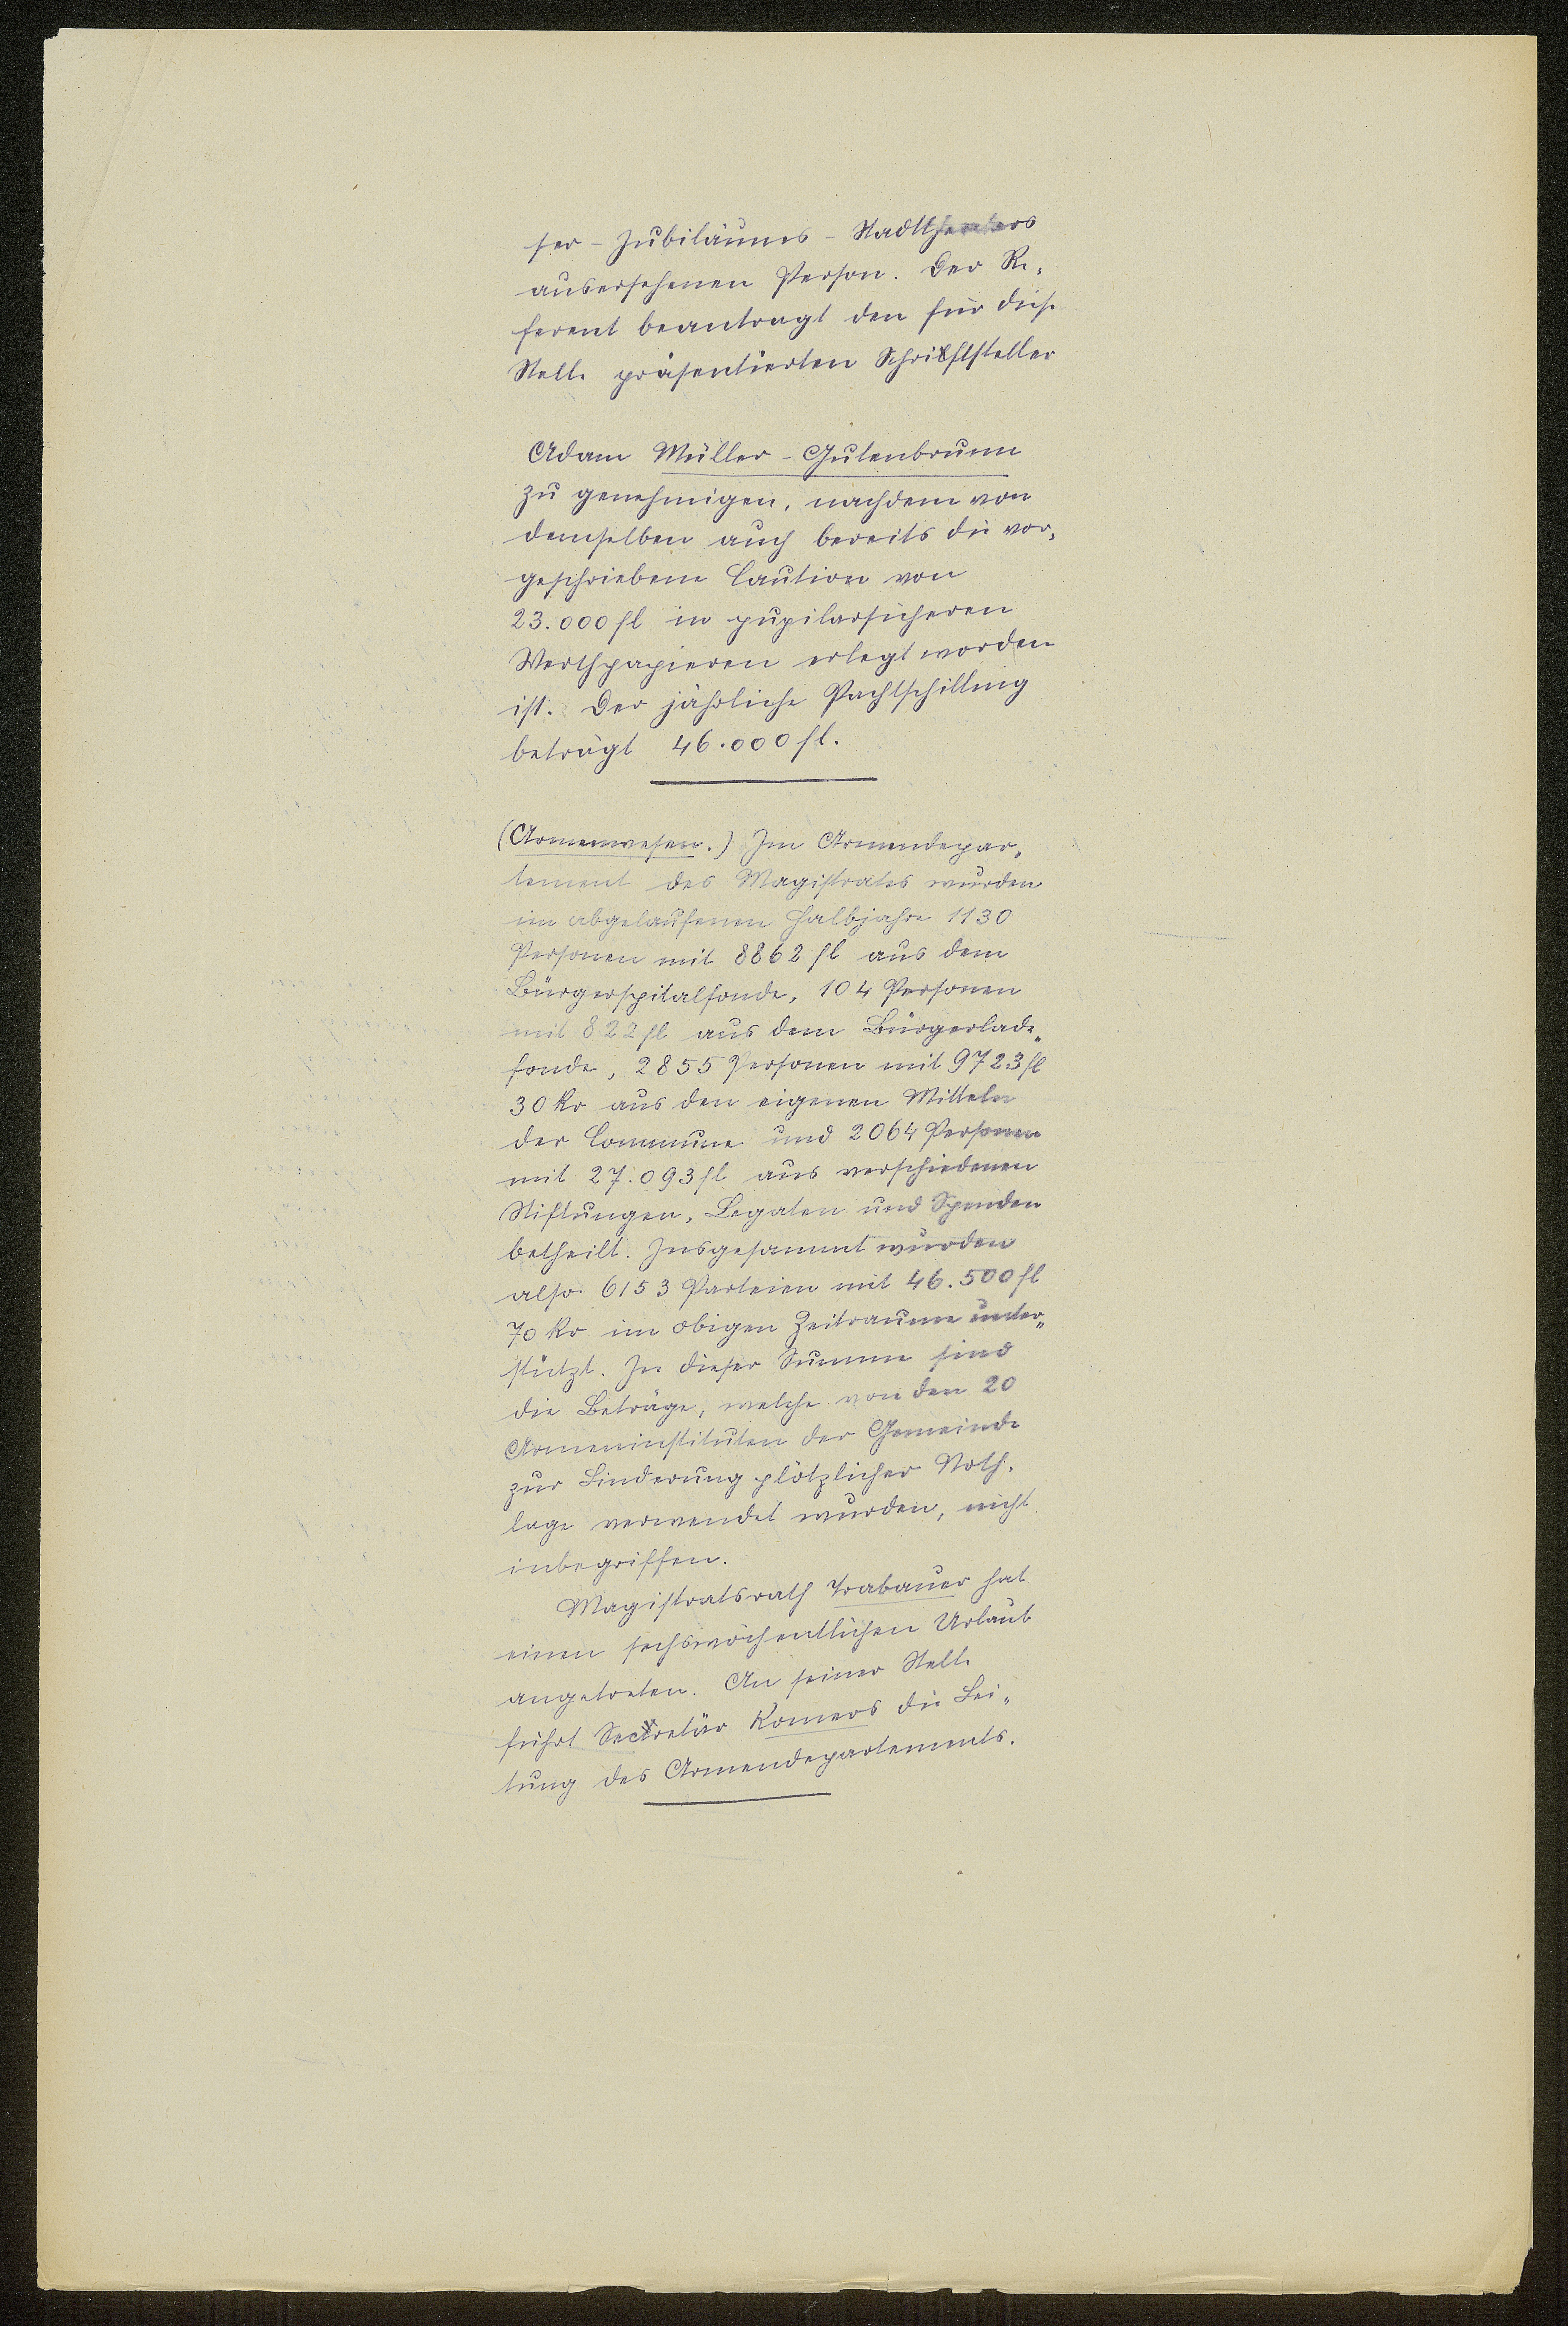 ser-Jubiläums-Stadttheaters
ausersehenen Person. Der Re-
ferent beantragt den für diese
Stelle präsentierten Schriftsteller
Adam Müller-Gutenbrunn
zu genehmigen, nachdem von
demselben auch bereits die vor-
geschriebene Caution von
23.000 fl in pupilarsicheren
Werthpapieren erlegt worden
ist. Der jährliche Pachtschilling
beträgt 46.000 fl.
(Armenwesen.) Im Armendepar-
tement des Magistrates wurden
im abgelaufenen Halbjahre 1130
Personen mit 8862 fl aus dem
Bürgerspitalfonde, 104 Personen
mit 822 fl aus dem Bürgerlade-
fonde, 2855 Personen mit 9723 fl
30 kr aus den eigenen Mitteln
der Commune und 2064 Personen
mit 27.093 fl aus verschiedenen
Stiftungen, Legaten und Spenden
betheilt. Insgesammt wurden
also 6153 Parteien mit 46.500 fl
70 kr im obigen Zeitraume unter-
stützt. In dieser Summe sind
die Beträge, welche von den 20
Armeninstituten der Gemeinde
zur Linderung plötzlicher Noth-
lage verwendet wurden, nicht
inbegriffen.
Magistratsrath Trabauer hat
einen sechswöchentlichen Urlaub
angetreten. An seiner Stelle
führt Secretär Komers die Lei-
tung des Armendepartements.